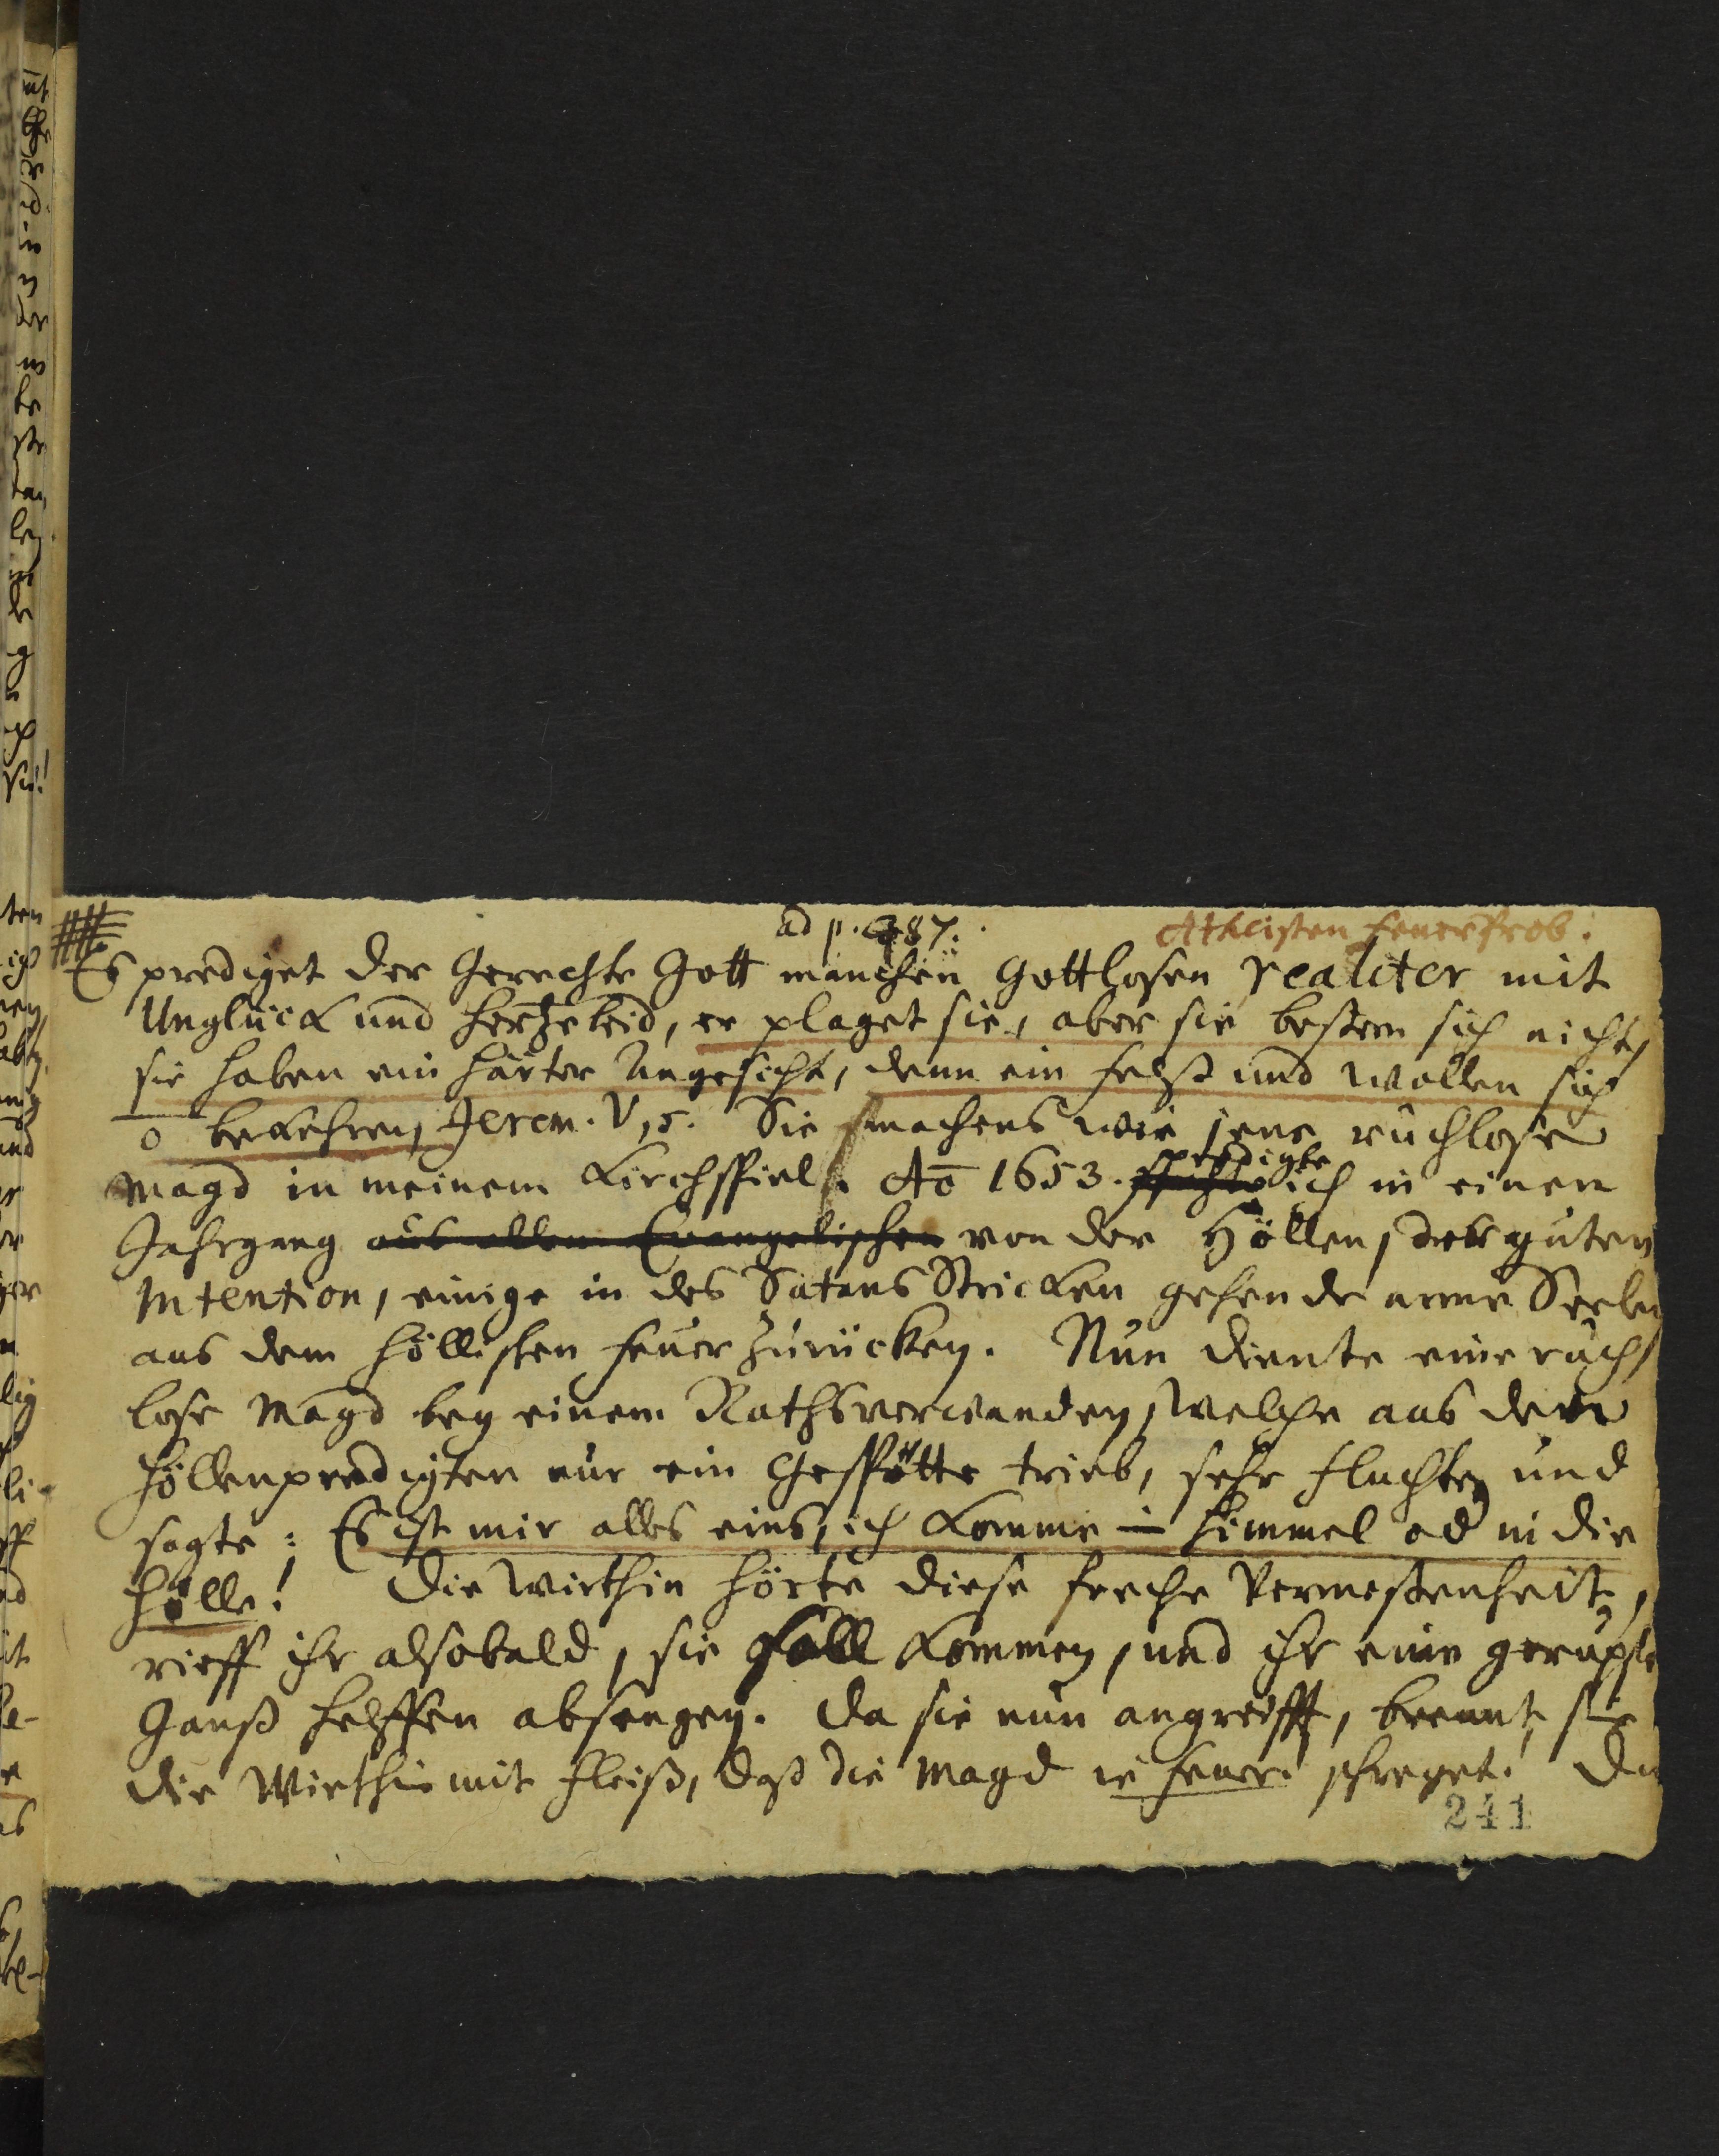 ad p. 487.
Atheisten Feuerprob.
Es prediget der Gerechte Gott manchen Gottlosen realiter mit
Unglück und Hertzeleid, er plaget sie, aber sie bessern sich nicht,
sie haben ein härter Angesicht, denn ein Felß und wollen sich
o bekehren, Jerem. V, 5. Sie machens wie jene ruchlose
Magd in meinem Kirchspiel. Ao 1653. predigte ich in einem
Jahrgang aus allen Evangelischen von der Höllen, der guten
Intention, einige in des Satans Stricken gehende arme Seelen
aus dem höllischen Feuer zurücken. Nun diente eine ruch
lose Magd bey einem Rathsverwanden, welche aus den
Höllenpredigten nur ein Gespötte trieb, sehr fluchte, und
sagte: Es ist mir alles eins, ich komme in Himmel od in die
Hölle! Die Wirthin hörte diese freche Vermessenheit,
rieff ihr alsobald, sie soll kommen, und ihr eine gerupfte
Ganß helffen absengen. Da sie nun angreifft, brennt sie
die Wirthin mit Fleiß, daß die Magd ie feuer! schreyet. Da
241